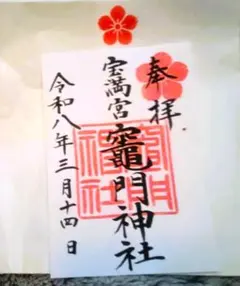 奉拝
宝満宮
竈門神社
令和八年三月十四日